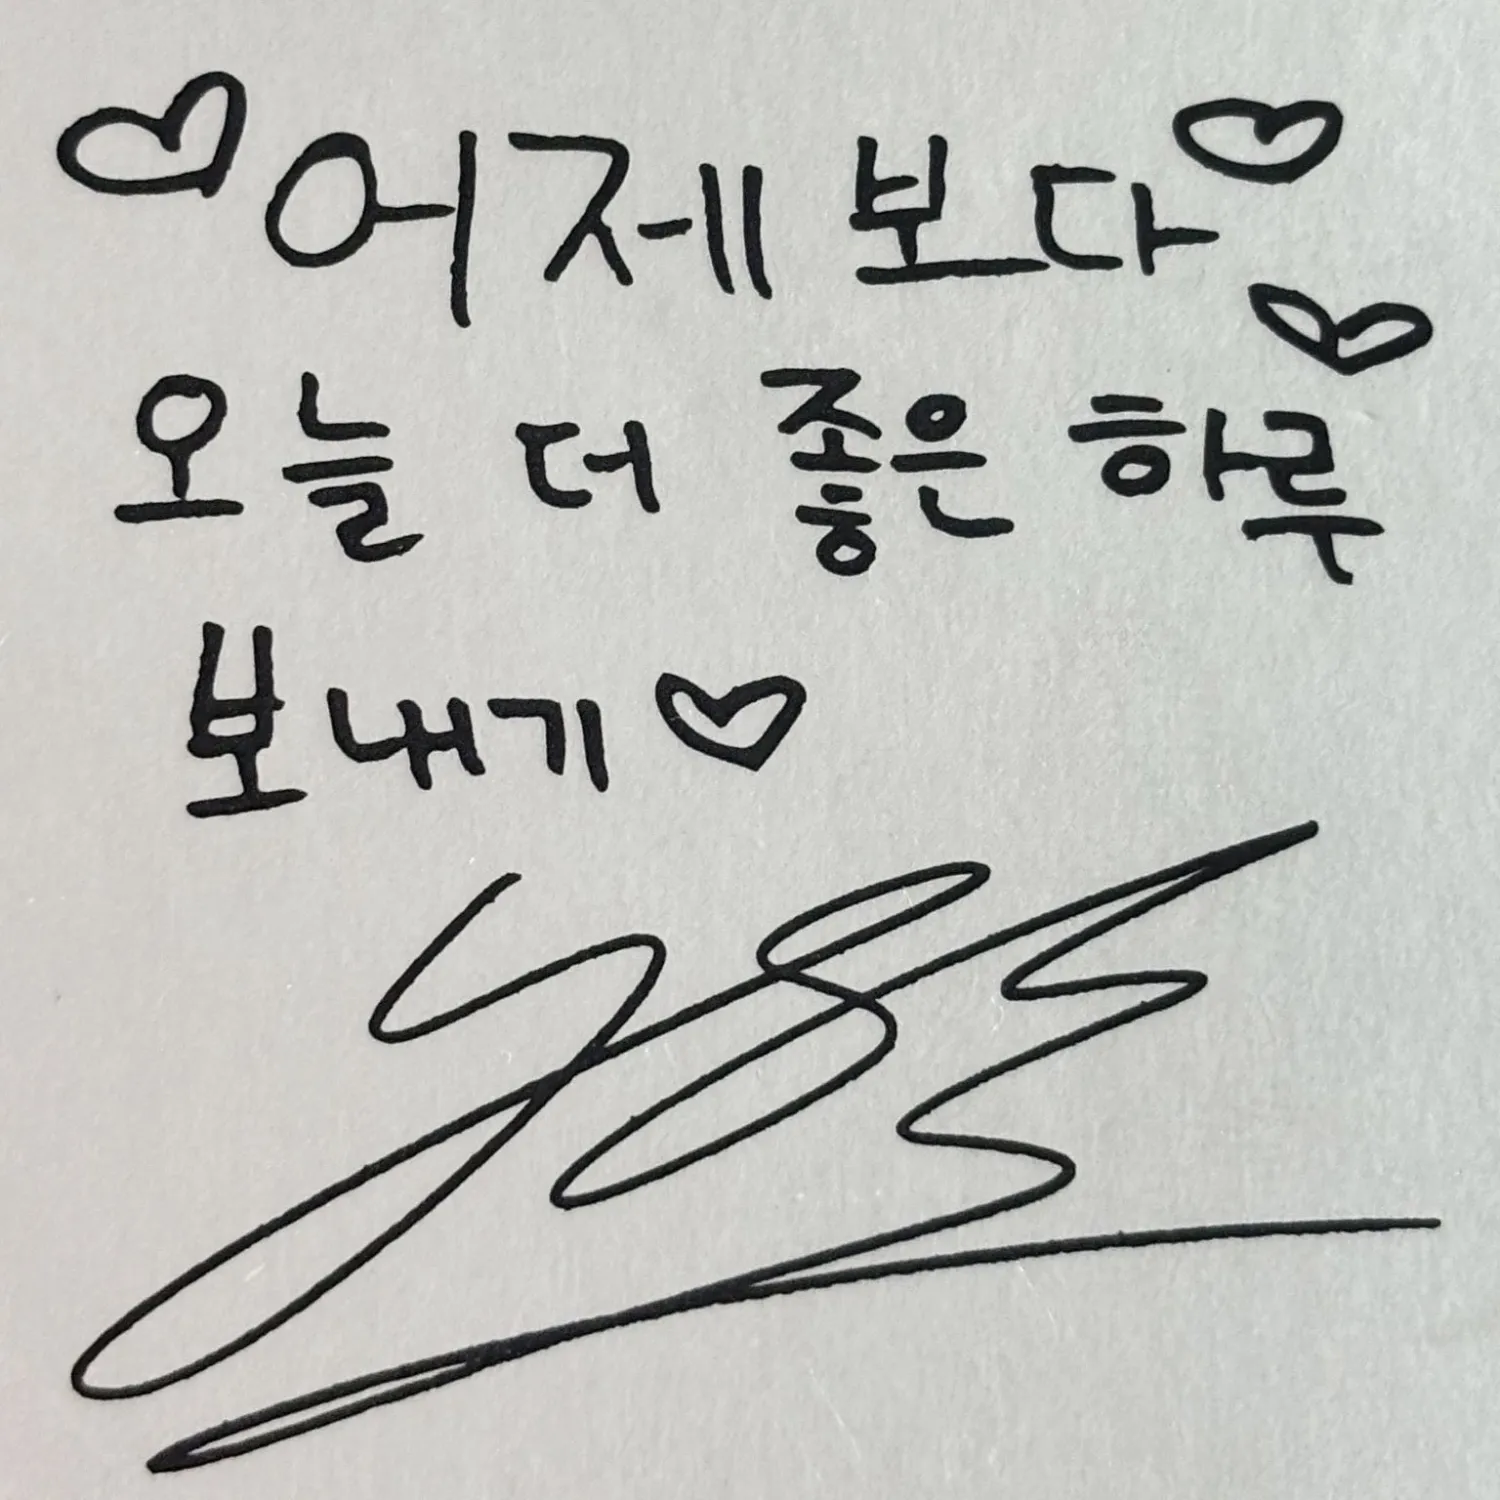 어제 보다
오늘 더 좋은 하루
보내기